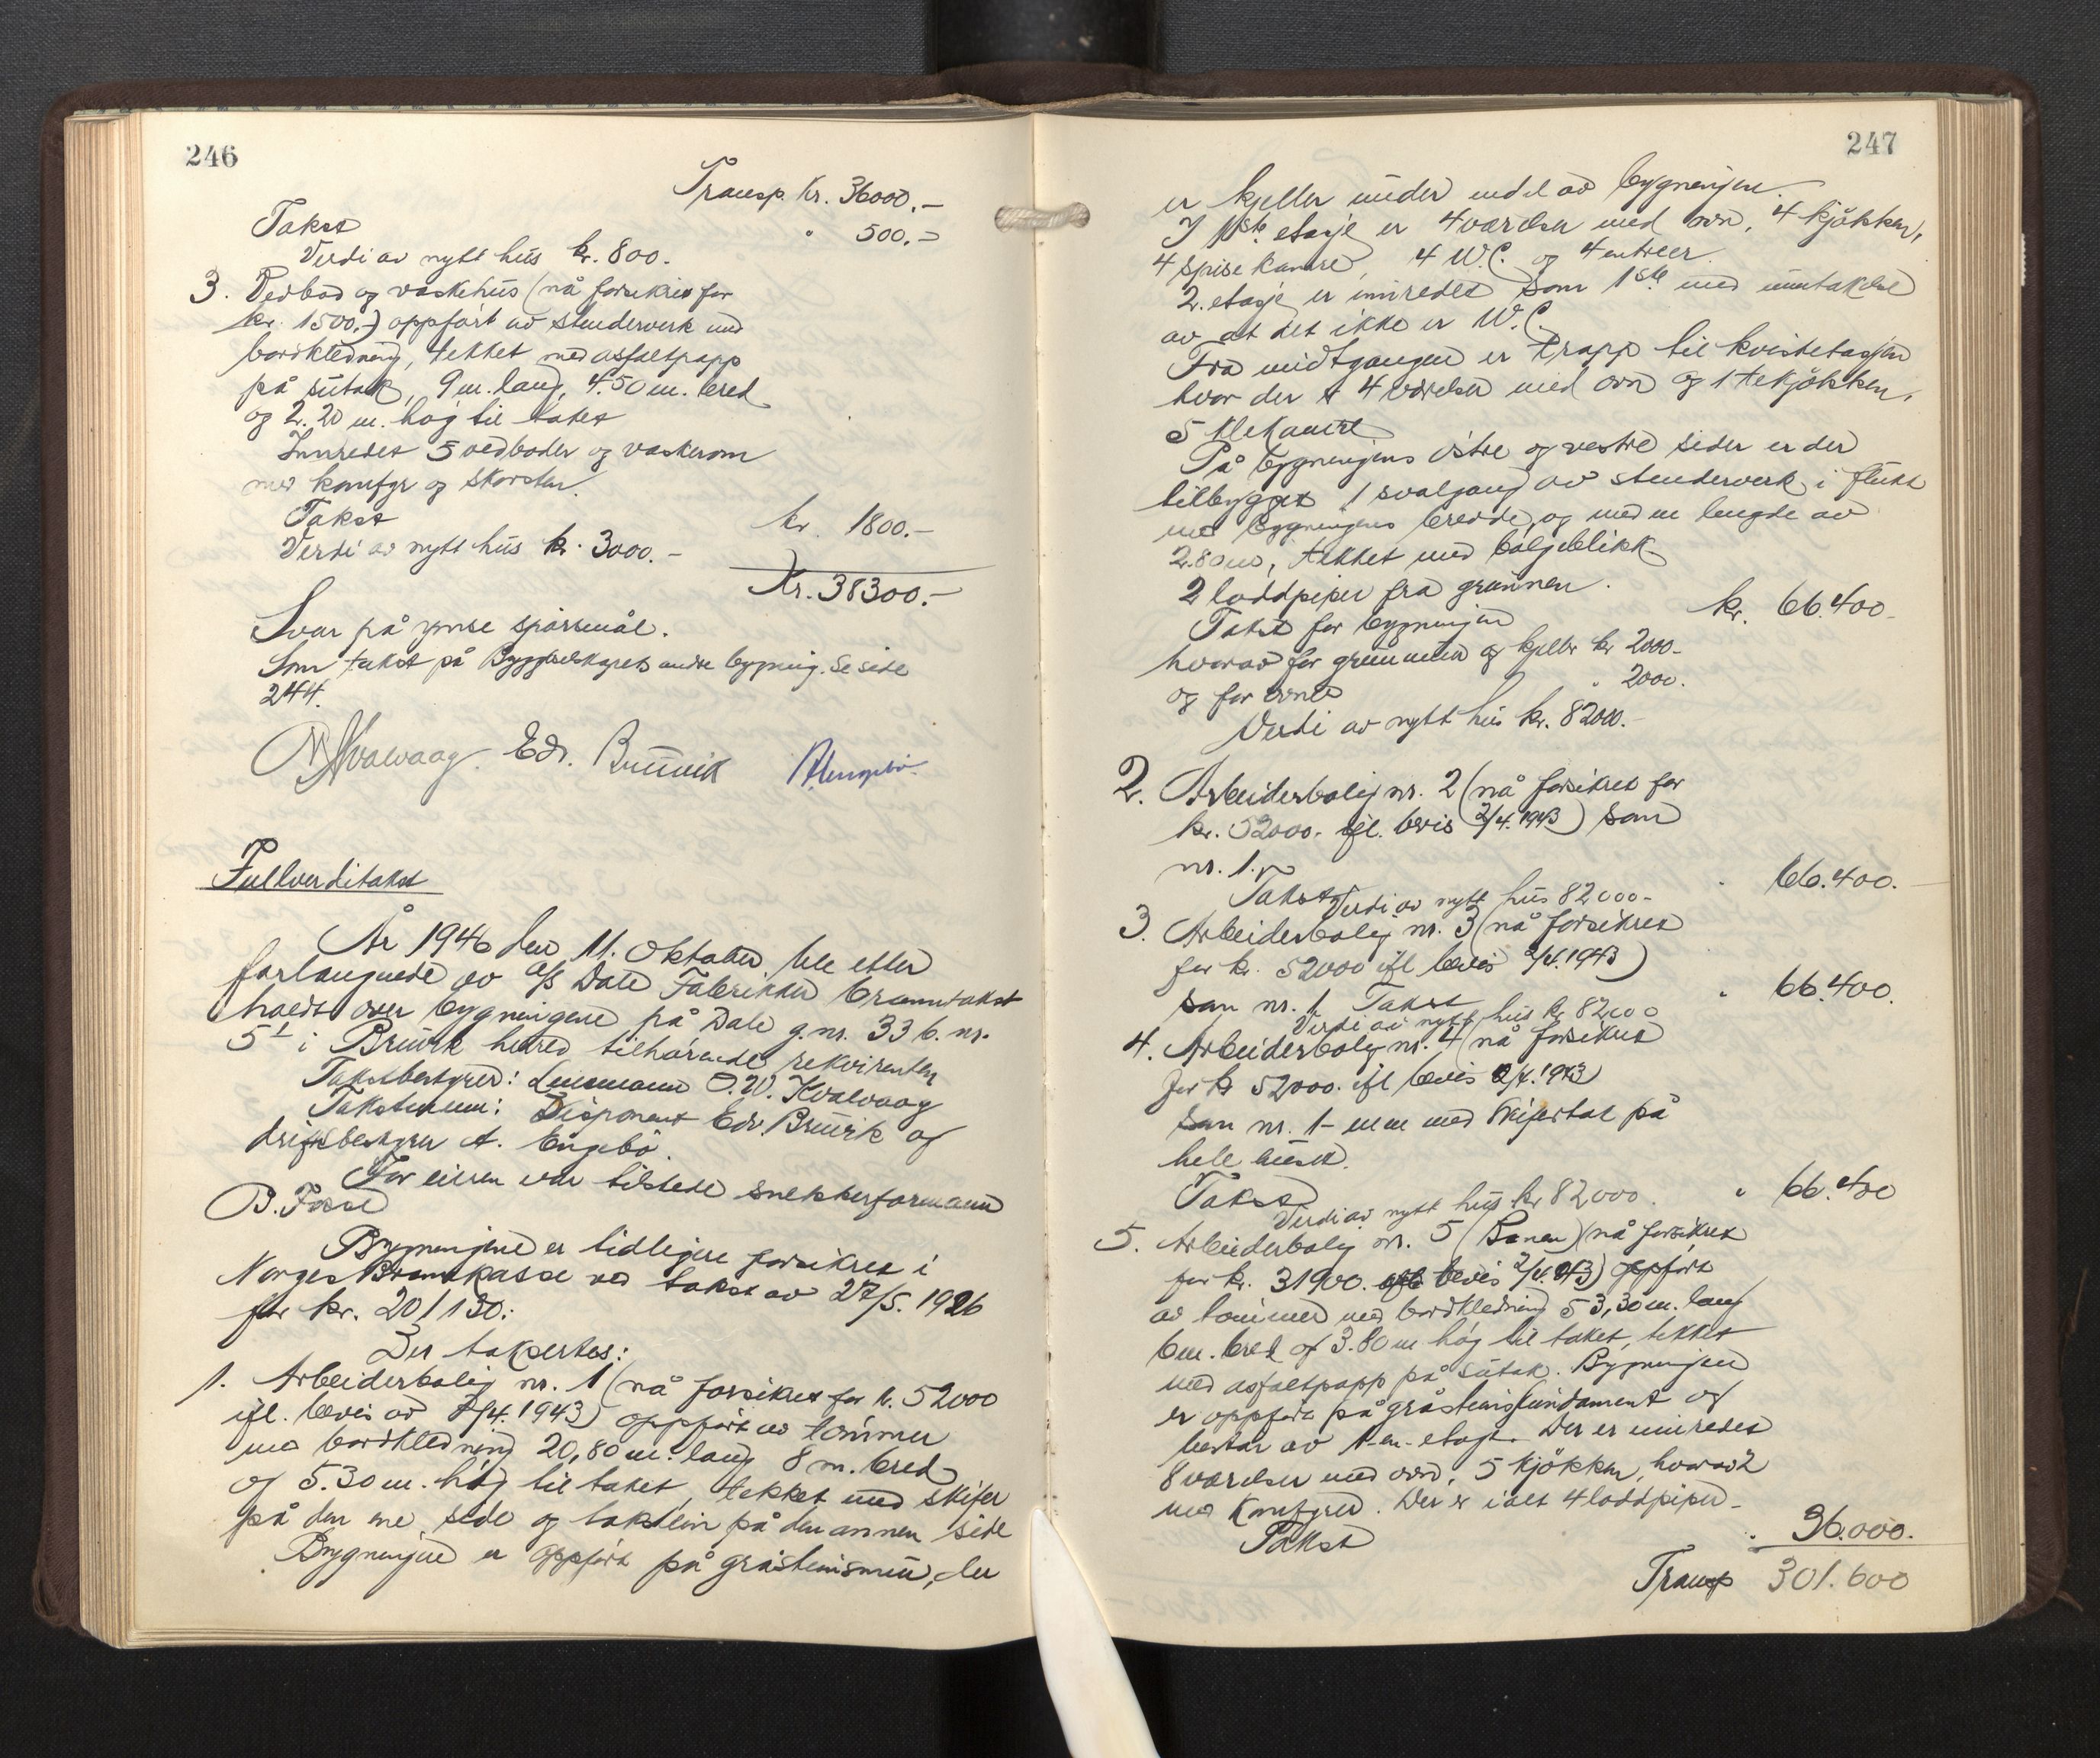 246
Transp. Kr. 36000.-
Takst " 500.-
Verdi av nytt hus kr. 800.
3. Vedbod og vaskehus (nå forsikret for
kr. 1500.-) oppført av stenderverk med
bordkledning, tekket med asfaltpapp
på sutak, 9 m. lang, 4.50 m. bred
og 2.20 m. høg til taket
Innredet 5 vedboder og vaskerom
med komfyr og skorsten.
Takst kr. 1800.-
Verdi av nytt hus kr. 3000.-
Kr. 38300.-
Svar på ymse spørsmål.
Som takst på Byggeselskapets andre bygning. Se side
244.
Kvalvaag. Edv. Bruvik A. Engebø.
Fullverditakst
År 1946 den 11. oktober ble etter
forlangende av A/S Dale Fabrikker branntakst
holdt over bygningene på Dale g.nr. 33 b.nr.
51 i Bruvik herred tilhørende rekvirenten
Takstbestyrer: Lensmann O.W. Kvalvaag
Takstmenn: Disponent Edv. Bruvik og
driftsbestyrer A. Engebø.
For eieren var tilstede snekkerformann
B. Fosse
Bygningene er tidligere forsikret i
Norges Brannkasse ved takst av 27/5. 1926
for kr. 201130:
Der taksertes:
1. Arbeiderbolig nr. 1 (nå forsikret for kr. 52000
ifl. bevis av 2/4. 1943) oppført av tømmer
med bordkledning 20,80 m. lang 8 m. bred
og 5.30 m. høg til taket, tekket med skifer
på den ene side og takstein på den annen side
Bygningene er oppført på gråsteinsmur, der
247
er kjeller under endel av bygningen.
I 1ste etasje er 4 værelser med ovn, 4 kjøkken,
4 spisekamre, 4 W.C. og 4 entreer.
2. etasje er innredet som 1ste med unntakelse
av at det ikke er W.C.
Fra midtgangen er trapp til kvistetasjen
hvor der er 4 værelser med ovn og 1 tekjøkken,
5 klekamre
På bygningens østre og vestre sider er der
tilbygget 1 svalgang av stenderverk i flukt
med bygningens bredde, og med en lengde av
2.80 m, tekket med bølgeblikk
2 loddpiper fra grunnen.
Takst for bygningen kr. 66.400-
hvorav for grunnmur og kjeller kr 2000-
og for ovner " 2000.
Verdi av nytt hus kr. 82000.-
2. Arbeiderbolig nr. 2 (nå forsikret for
kr. 52000. ifl. bevis 2/4. 1943) som
nr. 1.
Takst " 66.400.-
Verdi av nytt hus 82000-
3. Arbeiderbolig nr. 3 (nå forsikret
for kr. 52000 ifl bevis 2/4. 1943)
som nr. 1. Takst " 66.400.
Verdi av nytt hus kr 82000
4. Arbeiderbolig nr. 4 (nå forsikret
for kr 52000. ifl bevis 2/4. 1943)
som nr. 1- men med skifertak på
hele huset.
Takst " 66.400
Verdi av nytt hus kr 82000.
5. Arbeiderbolig nr. 5 (Banen) (nå forsikret
for kr. 31900. bevis 2/4. 43) oppført
av tømmer med bordkledning 53,30 m. lang
6 m. bred og 3.80 m høg til taket, tekket
med asfaltpapp på sutak. Bygningen
er oppført på gråsteinsfundament og
består av 1-en-etasje. Der er innredet
8 værelser med ovn, 5 kjøkken, hvorav 2
med komfyrer. Der er ialt 4 loddpiper-
Takst " 36.000.
Transp 301.600